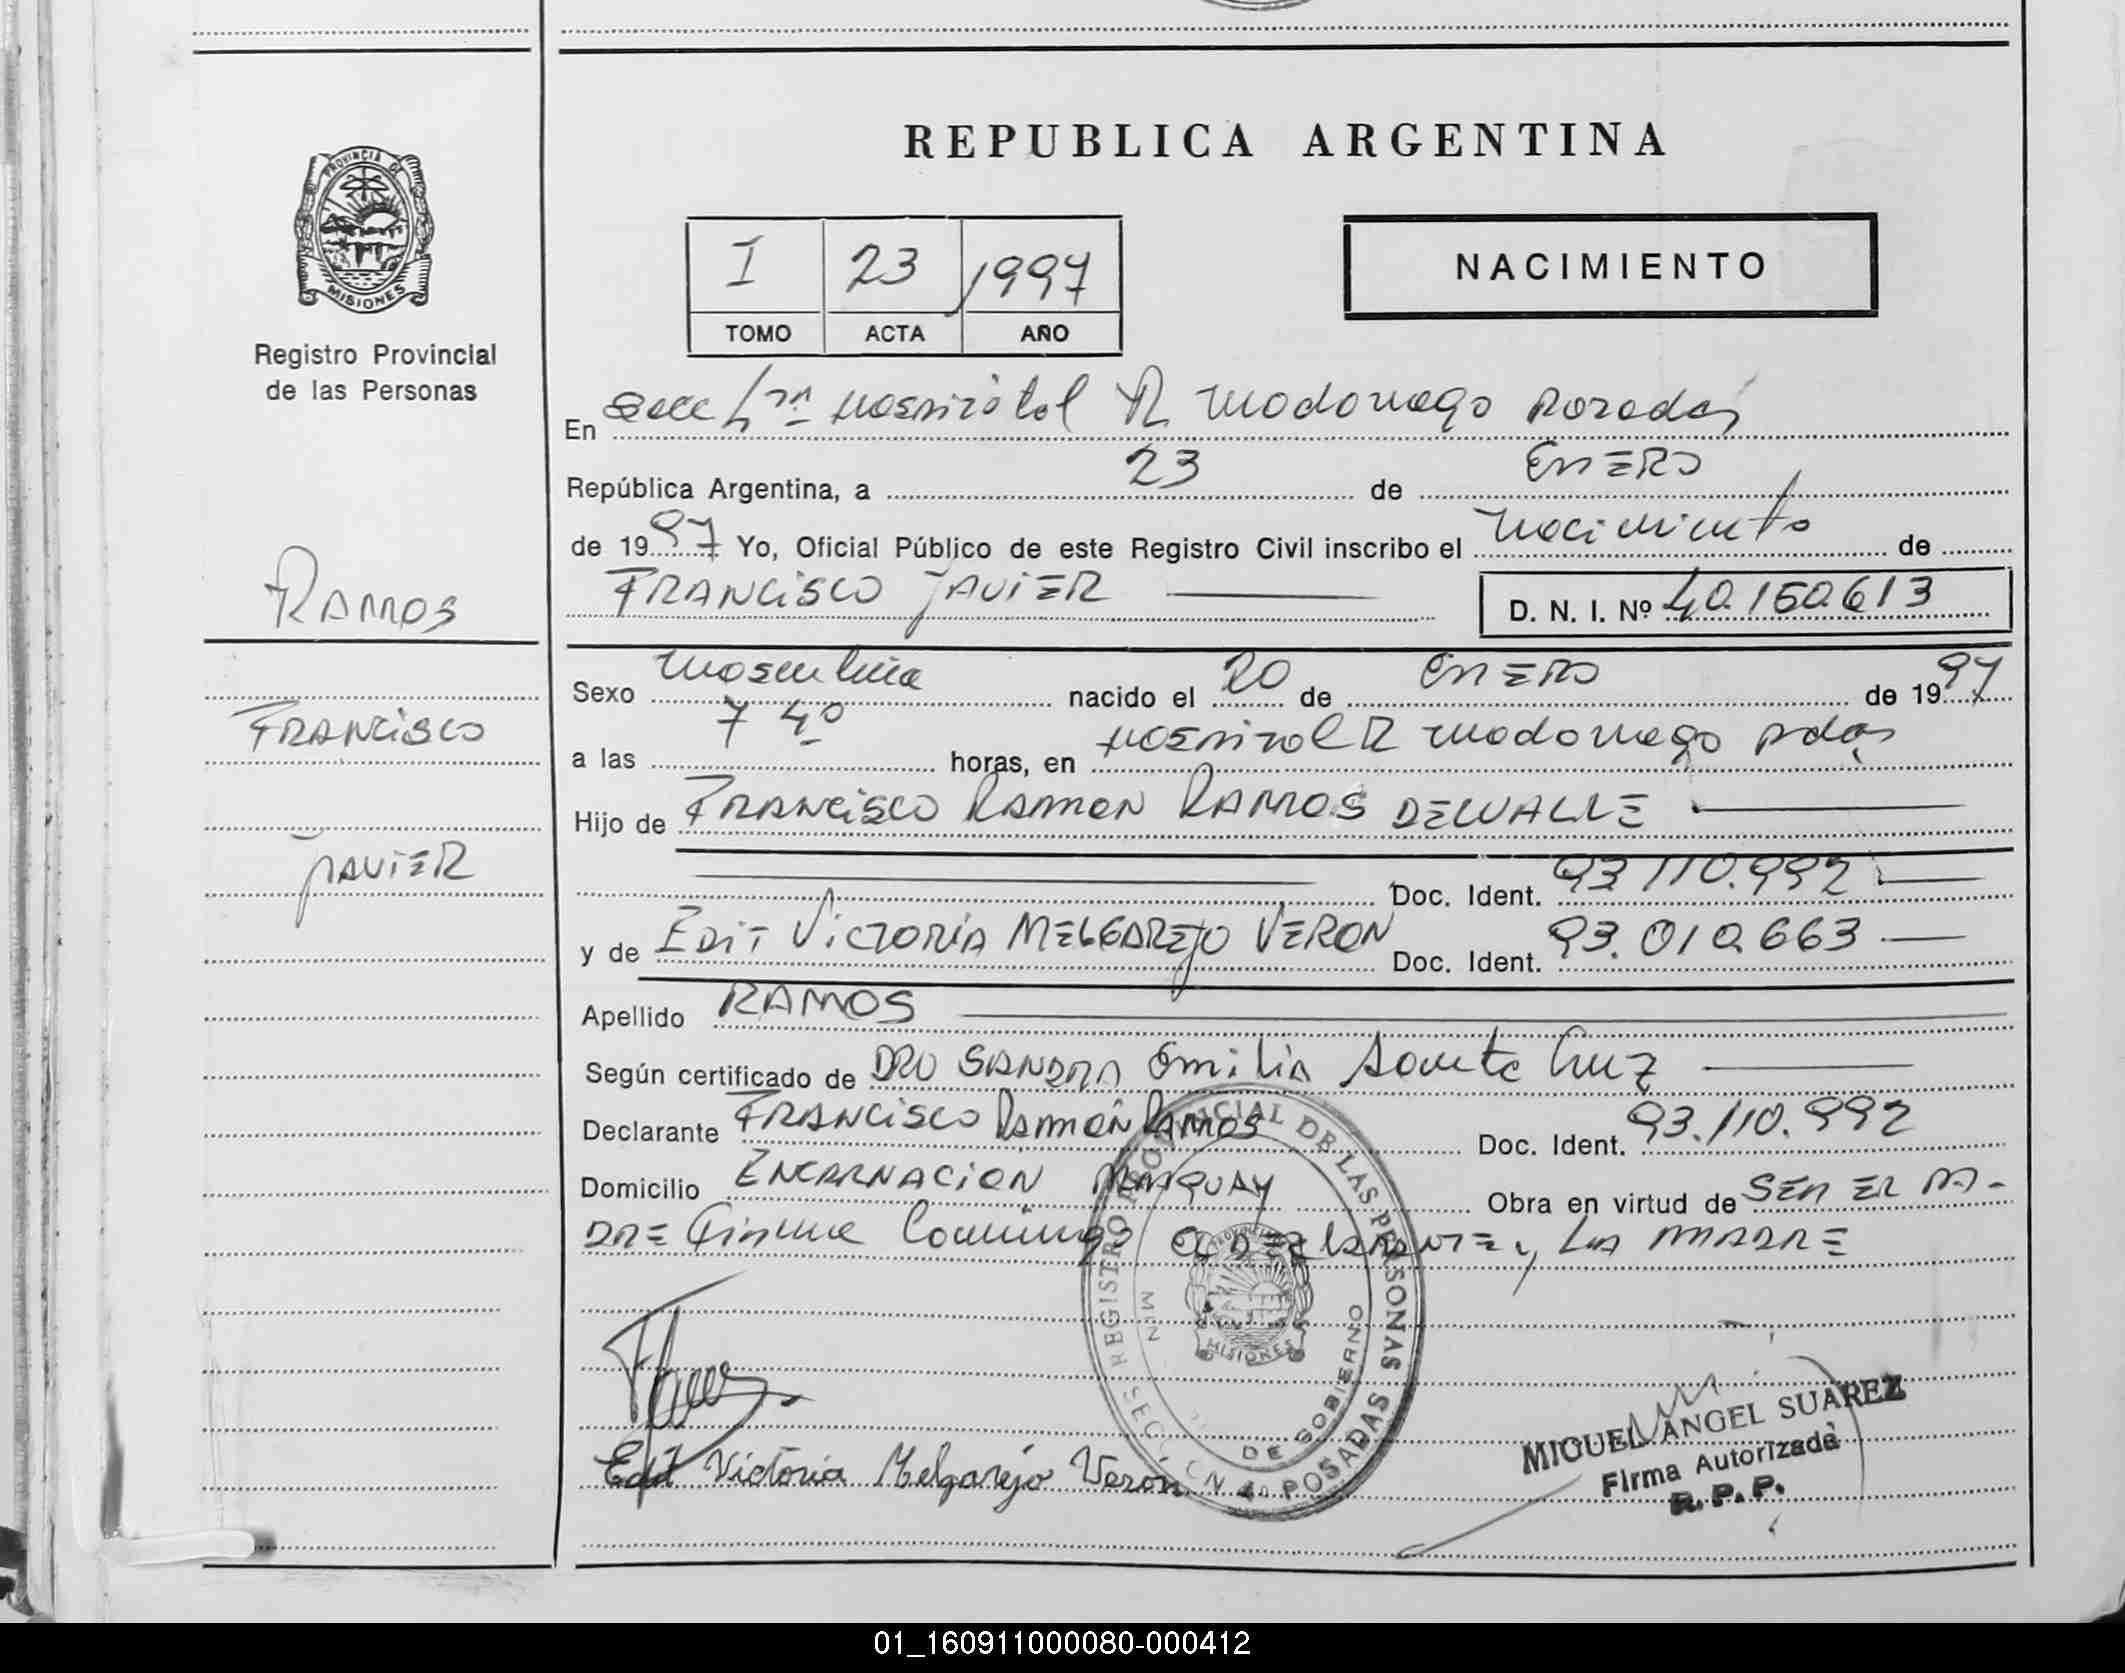 REPUBLICA ARGENTINA
PROVINCIA DE
MISIONES
Registro Provincial
de las Personas
I 23 1997
TOMO ACTA AÑO
NACIMIENTO
En Secc Hospital R Madariaga Posadas
República Argentina, a 23 de ENERO
de 1997 Yo, Oficial Público de este Registro Civil inscribo el nacimiento de
FRANCISCO JAVIER D. N. I. Nº 40.150.613
RAMOS
FRANCISCO
JAVIER
Sexo masculino nacido el 20 de ENERO de 1997
a las 7 40 horas, en Hospital R Madariaga Pdas
Hijo de FRANCISCO RAMON RAMOS DELVALLE
Doc. Ident. 93.110.992
y de EDIT VICTORIA MELGAREJO VERON Doc. Ident. 93.010.663
Apellido RAMOS
Según certificado de DRA SANDRA Emilia Santa Cruz
Declarante FRANCISCO RAMON RAMOS Doc. Ident. 93.110.992
Domicilio ENCARNACION PARAGUAY Obra en virtud de SER EL PA-
DRE Firma Conmigo el DECLARANTE, y LA MADRE
REGISTRO PROVINCIAL DE LAS PERSONAS
DE GOBIERNO
MISIONES
POSADAS
Edit Victoria Melgarejo Veron
MIGUEL ANGEL SUAREZ
Firma Autorizada
R. P. P.
01_160911000080-000412